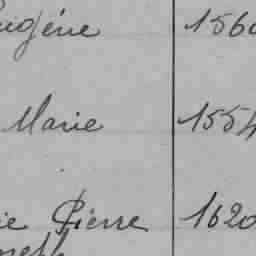 Eugène 1560
Marie 1554
ie Pierre 1620